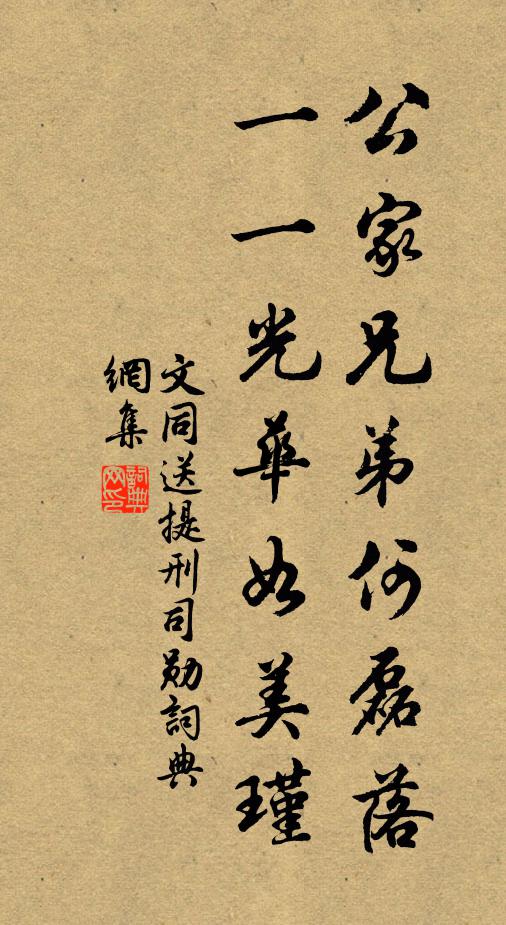 公家兄弟何磊落
一一光華如美瑾
文同送提刑司勋詞典
網集
詞典網印